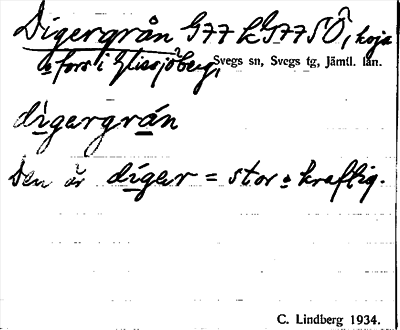 Digergrån G77 L G77 SÖ, koja
o fors i Glissjöberg, Svegs sn, Svegs tg, Jämtl. län.
digergrån
Den är diger = stor o kraftig.
C. Lindberg 1934.